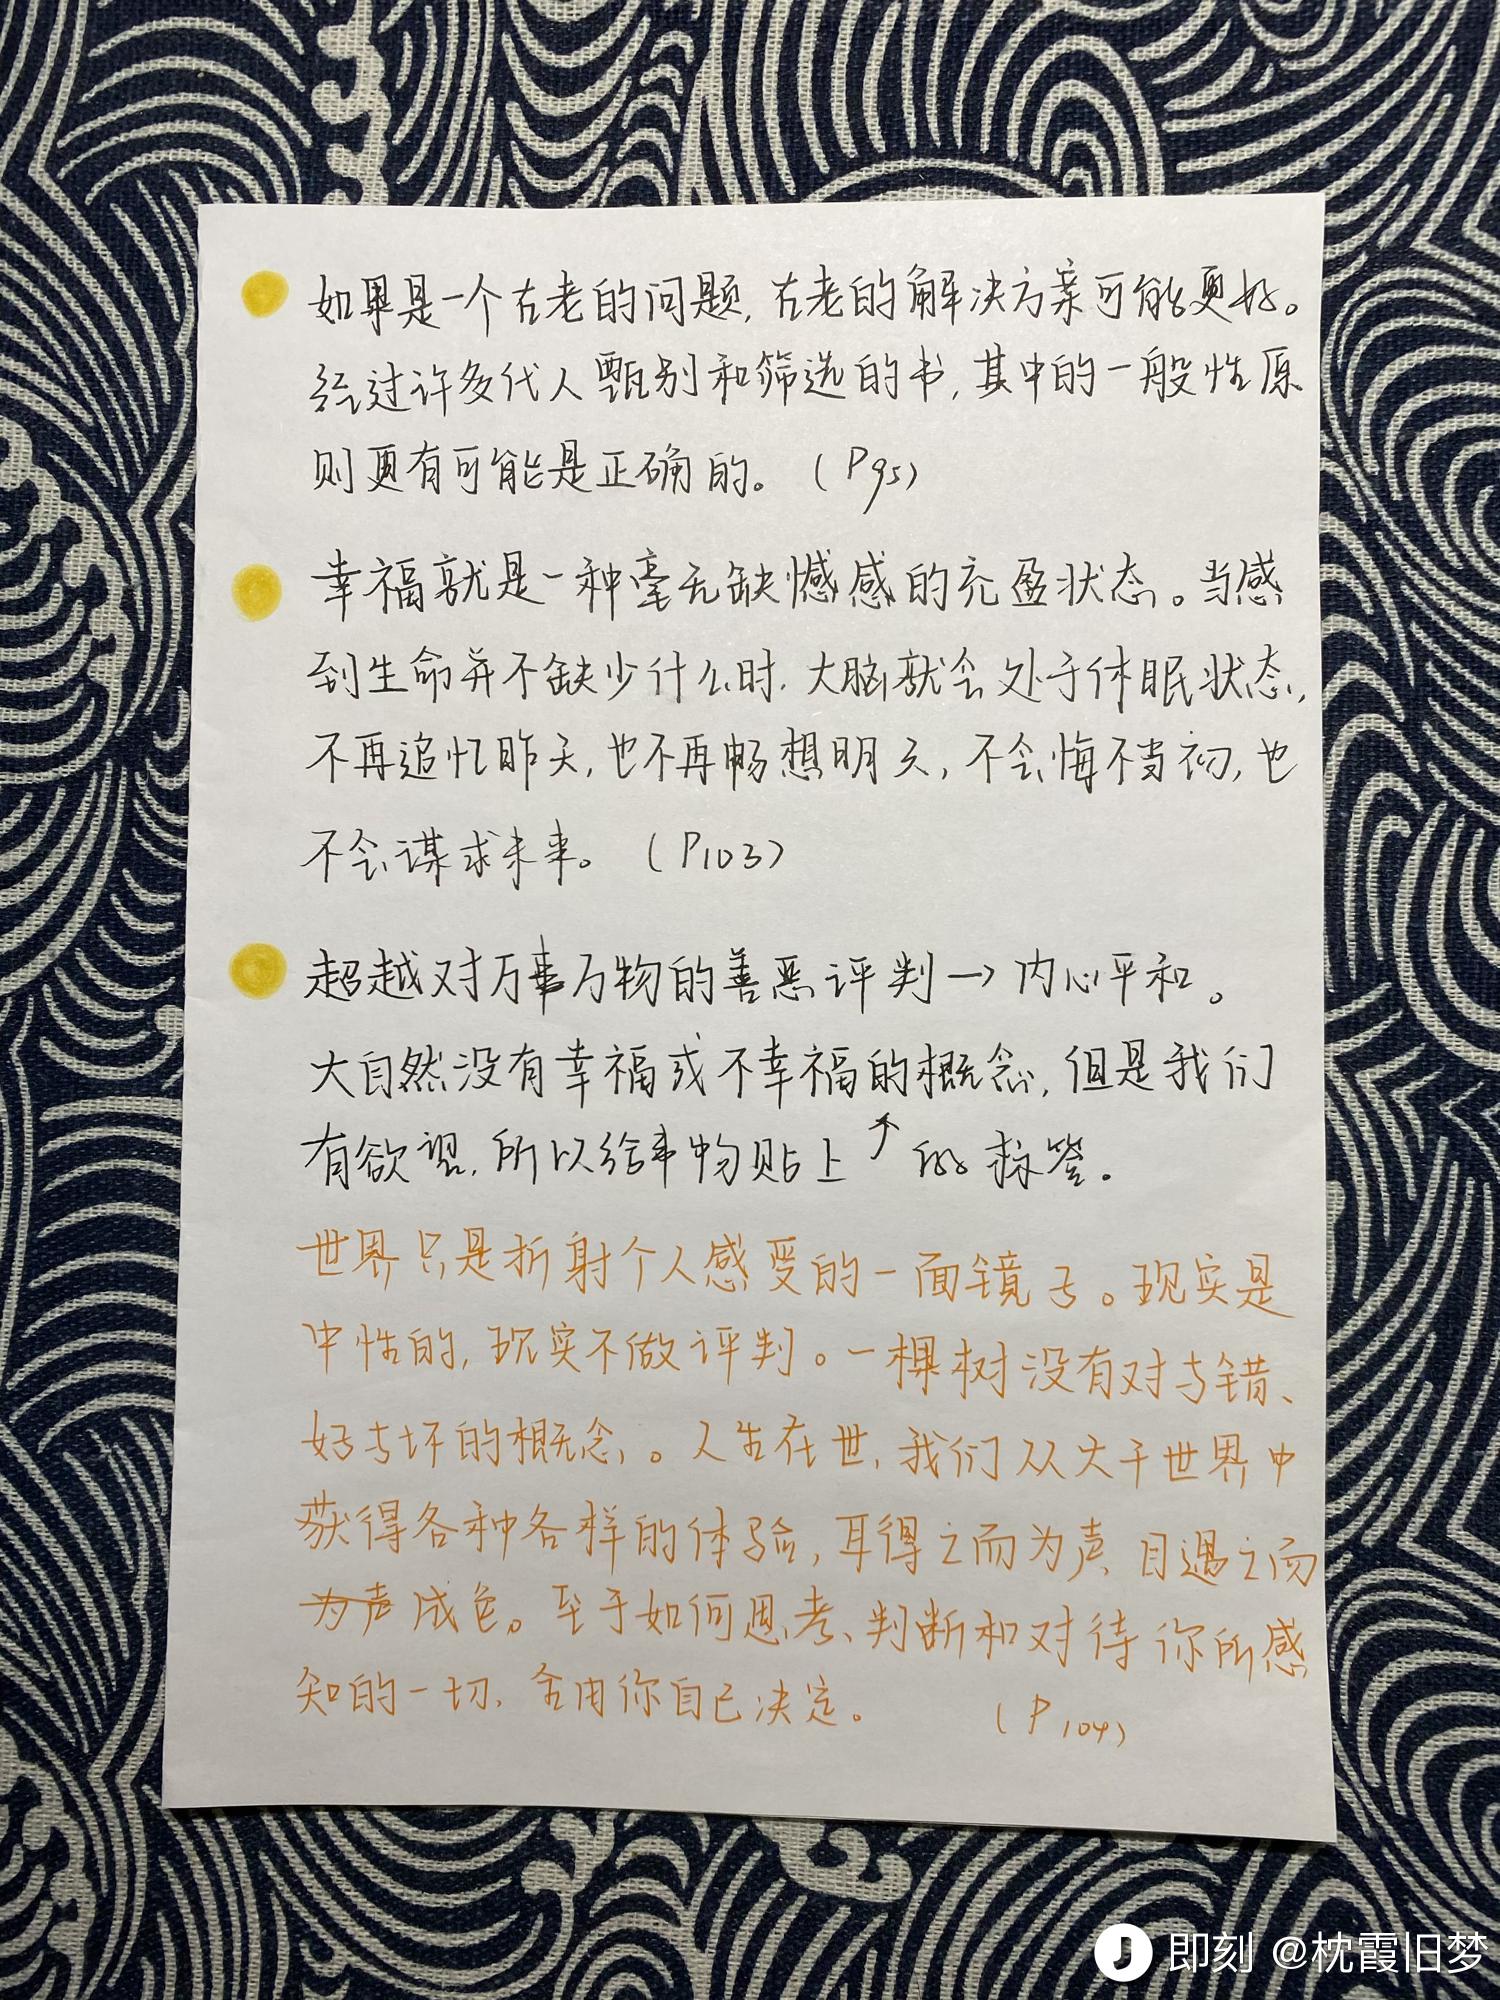 如果是一个古老的问题,古老的解决方案可能更好。
经过许多代人甄别和筛选的书,其中的一般性原
则更有可能是正确的。(P95)
幸福就是一种毫无缺憾感的充盈状态。当感
到生命并不缺少什么时,大脑就会处于休眠状态,
不再追忆昨天,也不再畅想明天,不会悔不当初,也
不会谋求未来。(P103)
超越对万事万物的善恶评判→内心平和。
大自然没有幸福或不幸福的概念,但是我们
有欲望,所以给事物贴上↗的标签。
世界只是折射个人感受的一面镜子。现实是
中性的,现实不做评判。一棵树没有对与错、
好与坏的概念。人生在世,我们从大千世界中
获得各种各样的体验,耳得之而为声,目遇之而
为声成色。至于如何思考、判断和对待你所感
知的一切,全由你自己决定。(P104)
即刻 @枕霞旧梦